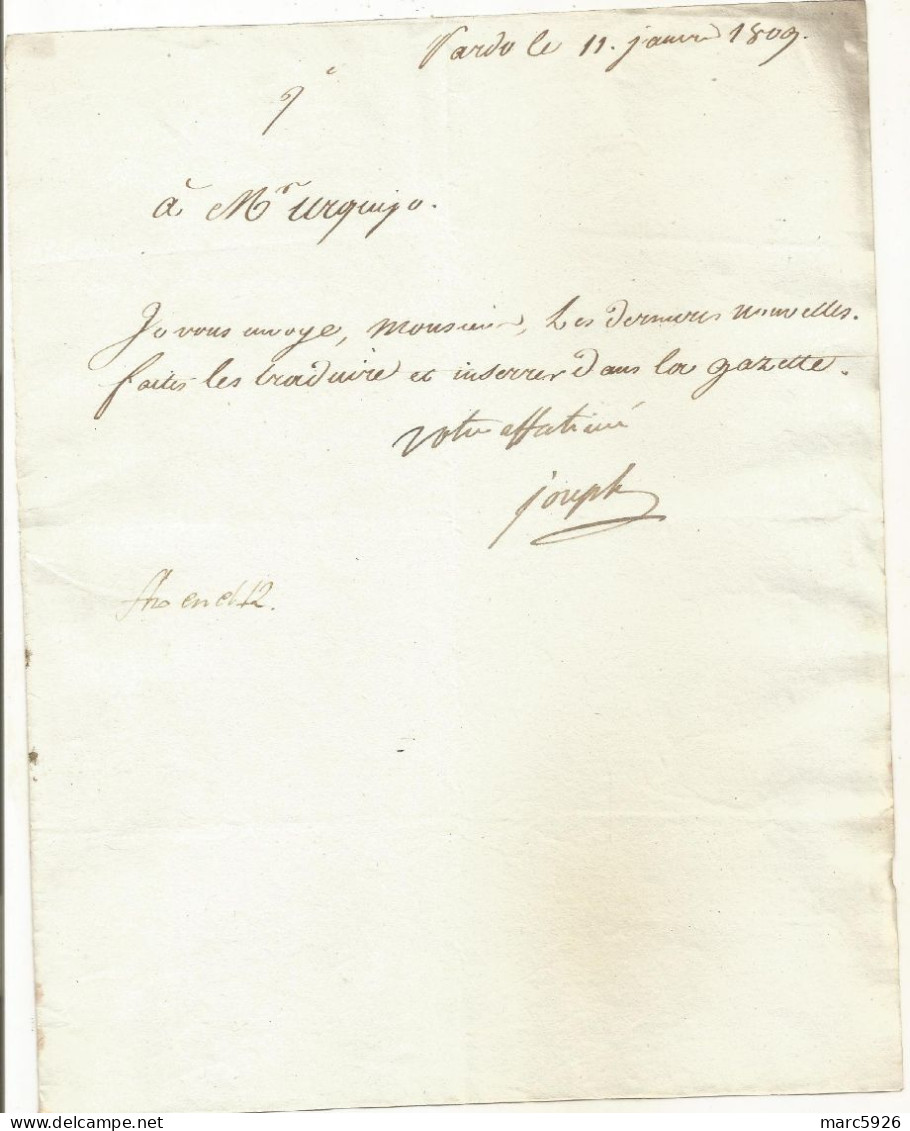 Pardo le 11. janvr 1809.
à Mr Urquijo.
Je vous envoye, Monsieur, Les dernieres nouvelles.
faites les traduire et inserrer dans la gazette.
votre affectionné
joseph
en el 12.
marc5926